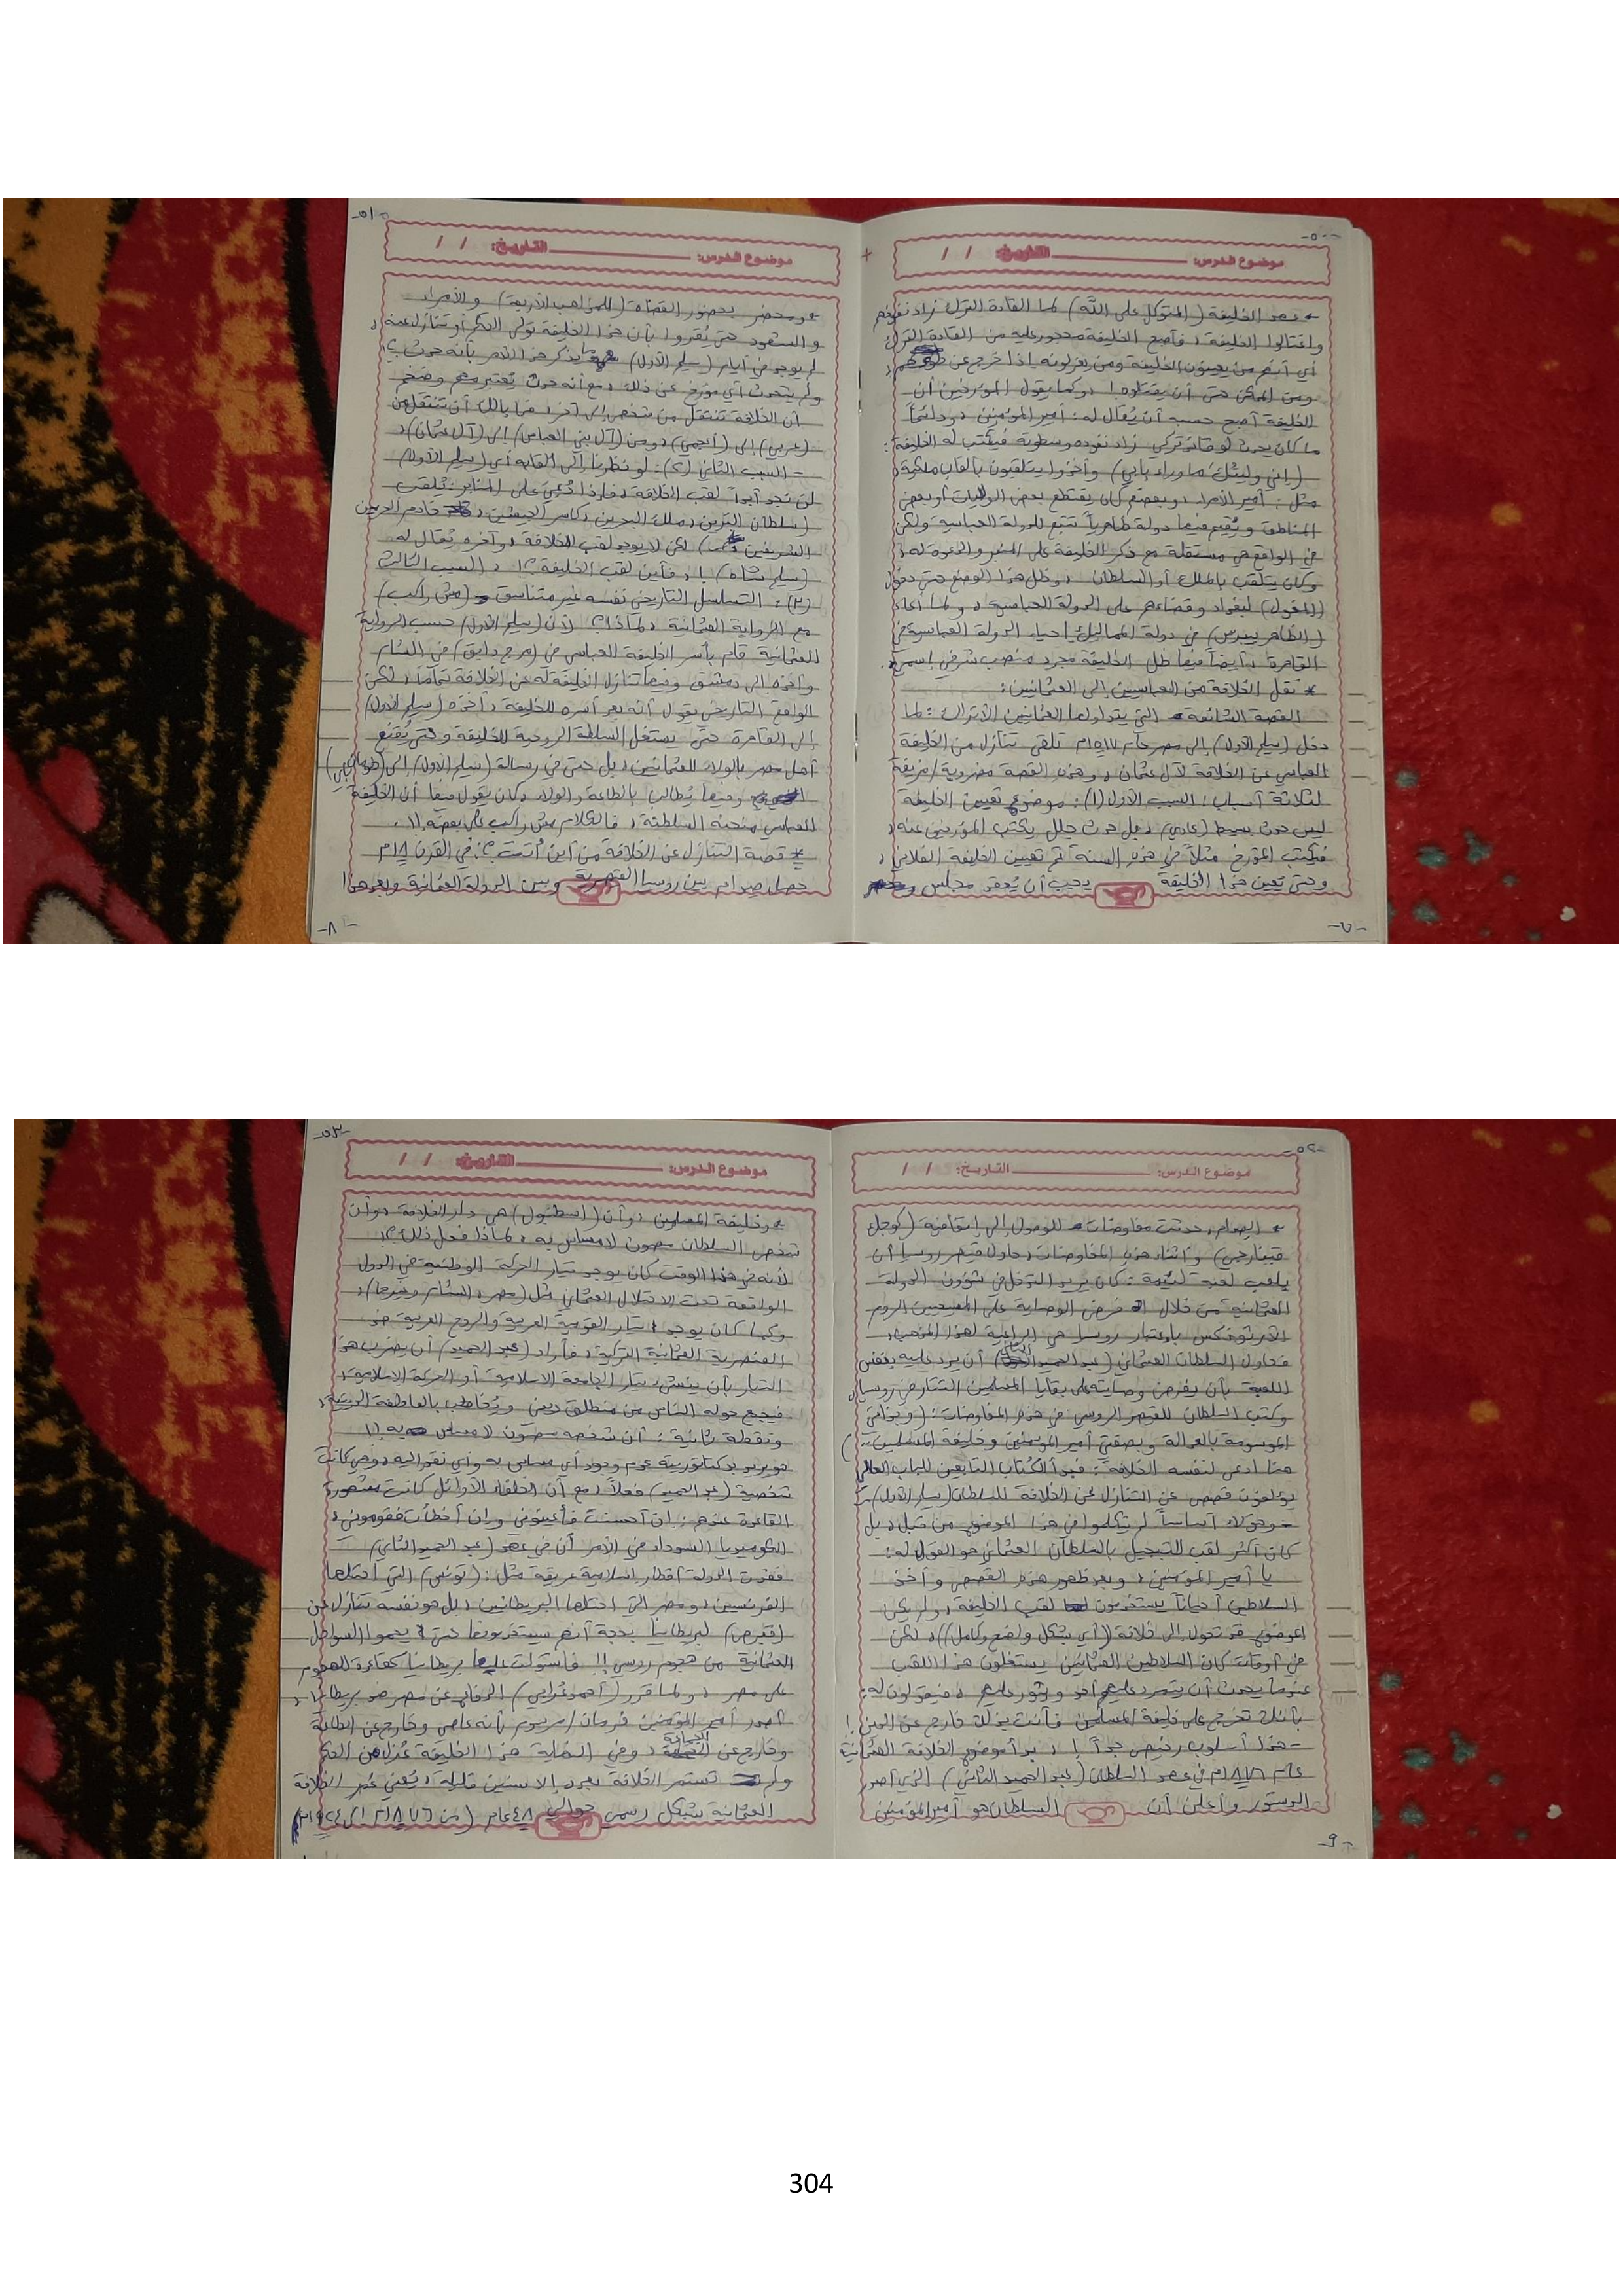 -٥٠-
موضوع الدرس: التاريخ: / /
* عهد الخليفة (المتوكل على الله) لما القادة الترك زاد نفوذهم
واغتالوا الخليفة، فأصبح الخليفة محجور عليه من القادة الترك
أي أنهم من يعينون الخليفة ومن يعزلونه إذا خرج عن
ومن الممكن حتى أن يقتلوه! وكما يقول المؤرخين أن
الخليفة أصبح حسبه أن يُقال له: أمير المؤمنين، ودائماً
ما كان يحدث لو قائد تركي زاد نفوذه وسطوته فيكتب له الخليفة:
(إني وليتك ما وراء بابي) وأخذوا يتلقبون بألقاب ملكية
مثل: أمير الأمراء، وبعضهم كان يقتطع بعض الولايات أو بعض
المناطق ويُقيم فيها دولة ظاهرياً تتبع للدولة العباسية ولكن
في الواقع هي مستقلة مع ذكر الخليفة على المنبر والدعوة له،
وكان يتلقب بالملك أو السلطان، وظل هذا الوضع حتى دخول
(المغول) لبغداد وقضاءهم على الدولة العباسية، ولما أعاد
(الظاهر بيبرس) في دولة المماليك إحياء الدولة العباسية في
القاهرة، أيضاً فيها ظل الخليفة مجرد منصب شرفي إسمي.
* نقل الخلافة من العباسيين إلى العثمانيين:
القصة الشائعة التي يتداولها العثمانيين الأتراك: لما
دخل (سليم الأول) إلى مصر عام ١٥١٧م تلقى تنازل من الخليفة
العباسي عن الخلافة لآل عثمان، وهذه القصة مضروبة/مزيفة
لثلاثة أسباب: السبب الأول (١): موضوع تعيين الخليفة
ليس حدث بسيط (عادي)، بل حدث جلل يكتب المؤرخين عنه،
فيكتب المؤرخ مثلاً في هذه السنة تم تعيين الخليفة الفلاني،
وحتى يُعين هذا الخليفة يجب أن يُعقد مجلس
-٧-
-٥١-
موضوع الدرس: التاريخ: / /
* ومحضر بحضور القضاة (للمذاهب الأربعة) والأمراء
والشهود حتى يُقروا بأن هذا الخليفة تولى الحكم أو تنازل عنه،
لم يوجد في أيام (سليم الأول) ما يذكر هذا الأمر بأنه حدث؟
ولم يتحدث أي مؤرخ عن ذلك، مع أنه حدث يُعتبر مهم وضخم
أن الخلافة تنتقل من شخص إلى آخر، فما بالك أن تنتقل من
(عربي) إلى (أعجمي)، ومن (آل بني العباس) إلى (آل عثمان)،
- السبب الثاني (٢): لو نظرنا إلى ألقابه أي (سليم الأول)
لن تجد أبداً لقب الخلافة، فإذا دُعي على المنابر: يُلقب
(سلطان البرين، ملك البحرين، كاسر الجيشين، خادم الحرمين
الشريفين) لكن لا يوجد لقب الخلافة، وآخره يُقال له
(سليم شاه)!، فأين لقب الخليفة؟!، السبب الثالث
(٣): التسلسل التاريخي نفسه غير متناسق (مش راكب)
مع الرواية العثمانية، لماذا؟! لأن (سليم الأول) حسب الرواية
العثمانية قام بأسر الخليفة العباسي في (مرج دابق) في الشام
وأخذه إلى دمشق وفيها تنازل الخليفة له عن الخلافة تماماً، لكن
الواقع التاريخي يقول أنه بعد أسره للخليفة، أخذه (سليم الأول)
إلى القاهرة حتى يستغل السلطة الروحية للخليفة وحتى يُقنع
أهل مصر بالولاء للعثمانيين، بل حتى في رسالة (سليم الأول) إلى (طومان باي)
وفيها يُطالب بالطاعة والولاء وكان يقول فيها أن الخليفة
العباسي منحه السلطنة، فالكلام مش راكب على بعضه!!.
* قصة التنازل عن الخلافة من أين أتت؟: في القرن ١٨م
حصل صدام بين روسيا القيصرية وبين الدولة العثمانية وبعد هذا
-٨-
-٥٢-
موضوع الدرس: التاريخ: / /
* الصدام، حدثت مفاوضات للوصول إلى إتفاقية (كوجك
قينارجي) وأثناء هذه المفاوضات، حاول قيصر روسيا أن
يلعب لعبة لئيمة: كان يريد التدخل في شؤون الدولة
العثمانية من خلال فرض الوصاية على المسيحيين الروم
الأرثوذكس باعتبار روسيا هي الراعية لهذا المذهب،
فحاول السلطان العثماني (عبد الحميد الأول) أن يرد عليه بنفس
اللعبة بأن يفرض وصايته على بقايا المسلمين التتار في روسيا،
وكتب السلطان للقيصر الروسي في هذه المفاوضات: (وبذاتي
الموسومة بالعدالة وبصفتي أمير المؤمنين وخليفة المسلمين...)
هنا ادعى لنفسه الخلافة: فبدأ الكُتاب التابعين للباب العالي
يؤلفون قصص عن التنازل عن الخلافة للسلطان (سليم الأول)
وهؤلاء أساساً لم يتكلموا في هذا الموضوع من قبل، بل
كان أكثر لقب التبجيل بالسلطان العثماني هو القول له:
يا أمير المؤمنين، وبعد ظهور هذه القصص وأخذ
السلاطين أحياناً يستخدمون لقب الخليفة، ولم يكن
الموضوع قد تحول إلى خلافة (أي بشكل واضح وكامل))، لكن
في أوقات كان السلاطين العثمانيين يستغلون هذا اللقب
عندما يحدث أن يتمرد عليهم أحد ويثور عليهم، فيقولون له:
بأنك تخرج على خليفة المسلمين فأنت بذلك خارج عن الدين!
- هذا أسلوب رخيص جداً!، بدأ موضوع الخلافة العثمانية
عام ١٨٧٦م في عهد السلطان (عبد الحميد الثاني) الذي أصدر
الدستور وأعلن أن السلطان هو أمير المؤمنين
-٩-
-٥٣-
موضوع الدرس: التاريخ: / /
* وخليفة المسلمين، وأن (اسطنبول) هي دار الخلافة، وأن
شخص السلطان مصون لا مساس به، لماذا فعل ذلك؟!
لأنه في هذا الوقت كان يوجد تيار الحركة الوطنية في الدول
الواقعة تحت الاحتلال العثماني مثل (مصر، الشام وغيرها)،
وكما كان يوجد تيار القومية العربية والروح العربية ضد
العنصرية العثمانية التركية، فأراد (عبد الحميد) أن يضرب هذا
التيار بأن ينشئ تيار الجامعة الإسلامية أو الحركة الإسلامية،
فيجمع حوله الناس من منطلق ديني ويُخاطب بالعاطفة الدينية،
ونقطة ثانية: أن شخصه مصون لا مساس به!!
هو يريد بدكتاتورية عدم وجود أي مساس به وأي نقد إليه، وهي كانت
شخصية (عبد الحميد) فعلاً، مع أن الخلفاء الأوائل كانت مشهورة
القاعدة عندهم: إن أحسنت فأعينوني وإن أخطأت فقوموني،
الكوميديا السوداء في الأمر أن في عهد (عبد الحميد الثاني)
فقدت الدولة أقطار إسلامية عريقة مثل: (تونس) التي احتلها
الفرنسيين، ومصر التي احتلها البريطانيين، بل هو نفسه تنازل عن
(قبرص) لبريطانيا بحجة أنهم سيستخدمونها حتى يحموا السواحل
العثمانية من هجوم روسي!! فاستولت عليها بريطانيا كقاعدة للهجوم
على مصر، ولما قرر (أحمد عرابي) الدفاع عن مصر ضد بريطانيا،
أصدر أمير المؤمنين فرمان/مرسوم بأنه عاصي وخارج عن الطاعة
وخارج عن، وفي النهاية هذا الخليفة عُزل من الحكم
ولم تستمر الخلافة بعده إلا سنين قليلة، يُعني عمر الخلافة
العثمانية بشكل رسمي حوالي ٤٨ عام (من ١٨٧٦م إلى ١٩٢٤م)
304